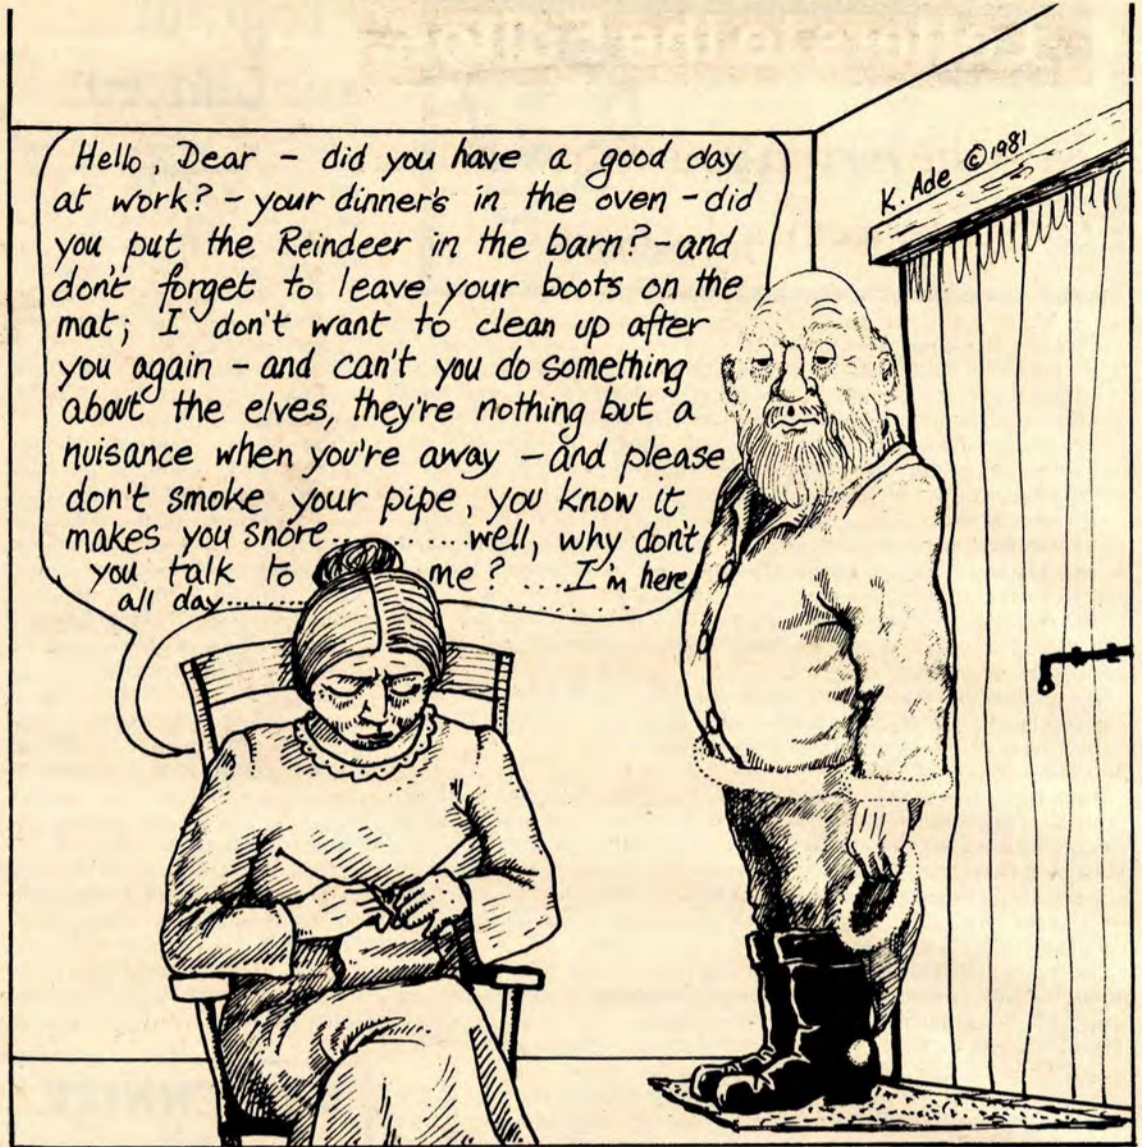 Hello, Dear - did you have a good day
at work? - your dinner's in the oven - did
you put the Reindeer in the barn? - and
don't forget to leave your boots on the
mat; I don't want to clean up after
you again - and can't you do something
about the elves, they're nothing but a
nuisance when you're away - and please
don't smoke your pipe, you know it
makes you snore.......... well, why don't
you talk to me? .... I'm here
all day...............
K. Ade © 1981